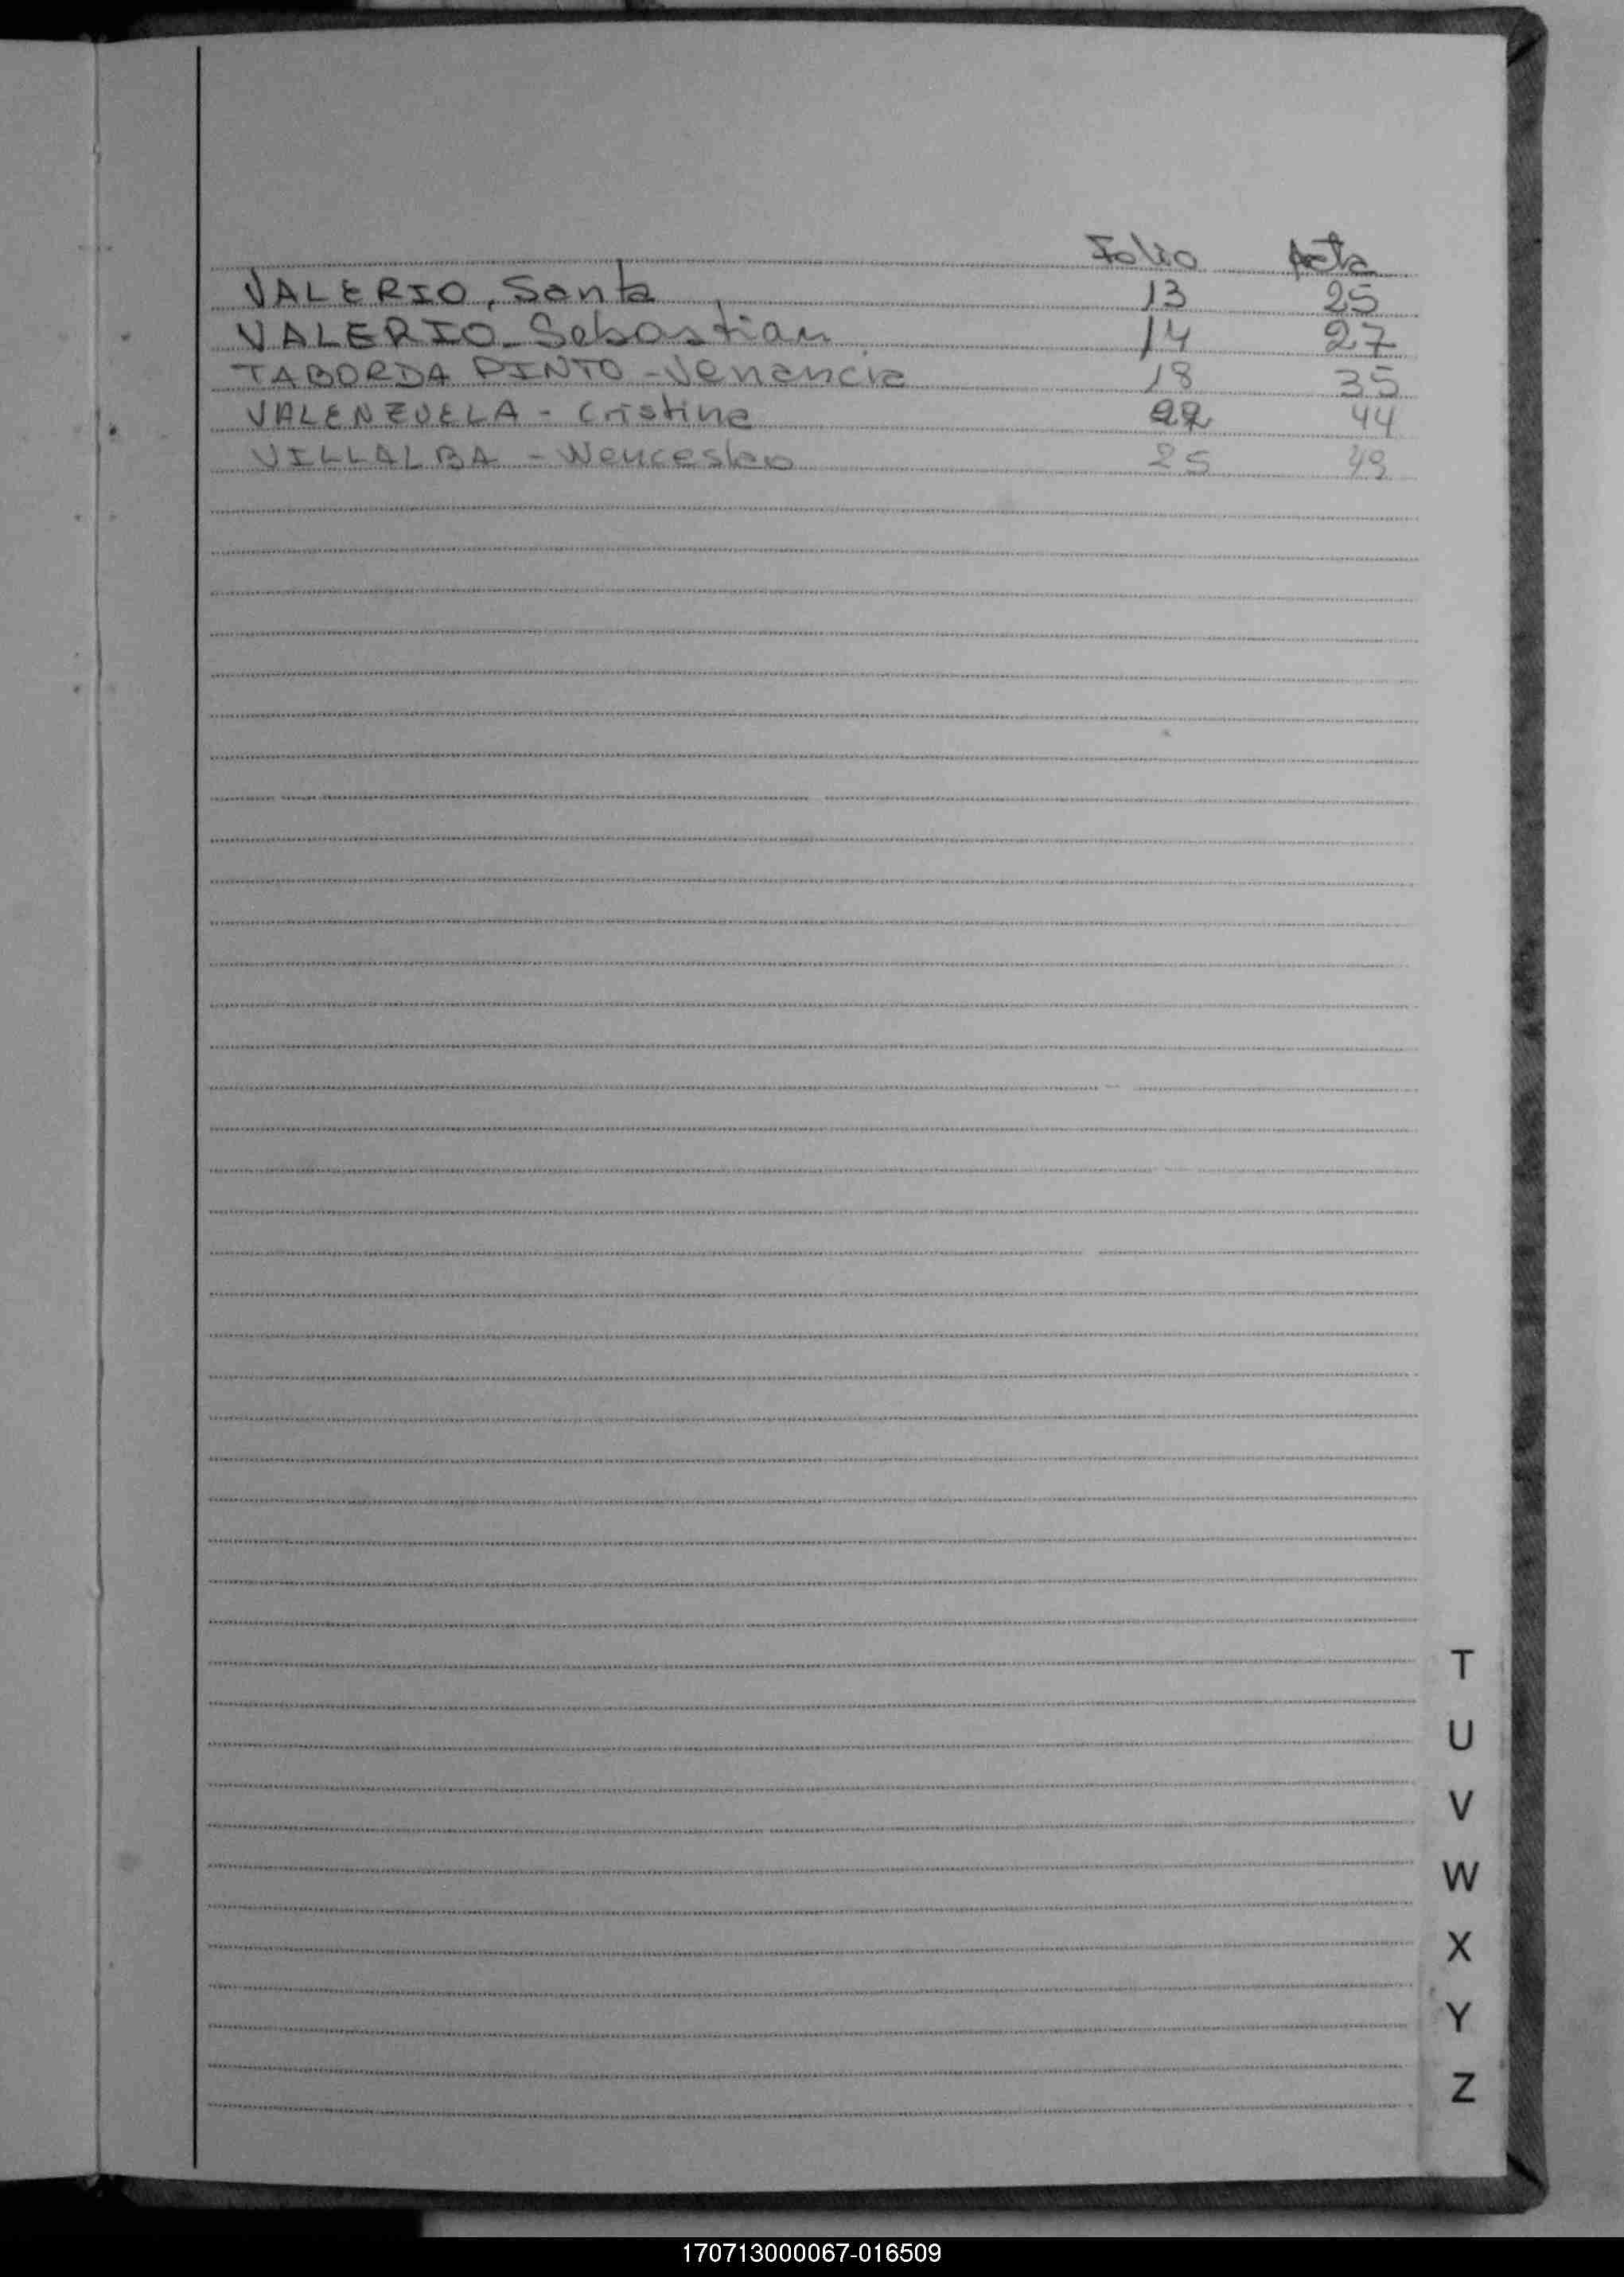 Folio Acta
VALERIO, Santa 13 25
VALERIO - Sebastian 14 27
TABORDA PINTO - Venancia 18 35
VALENZUELA - Cristina 22 44
VILLALBA - Wenceslao 25 49
T
U
V
W
X
Y
Z
170713000067-016509